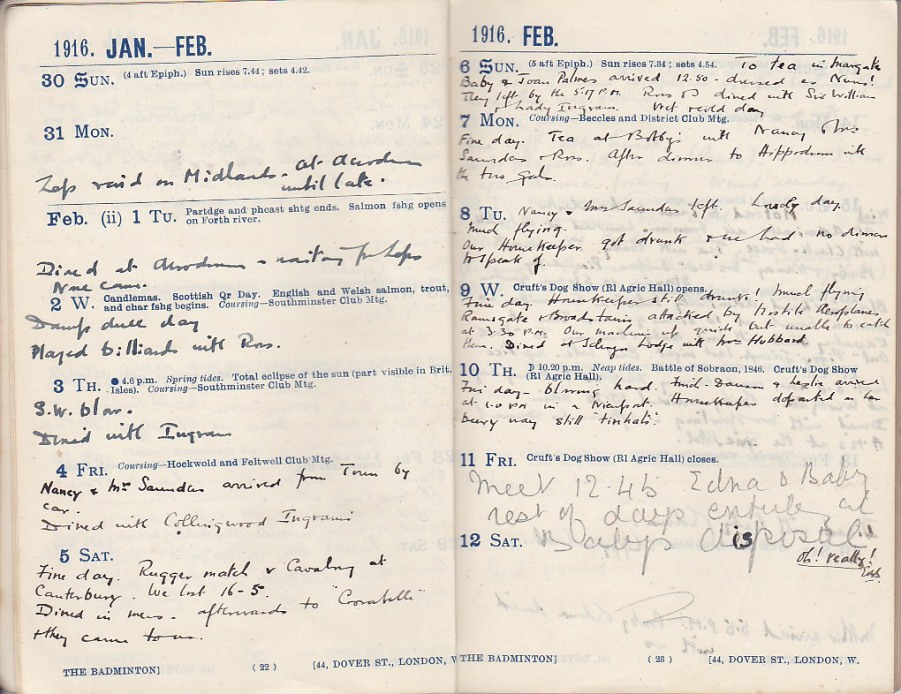 1916. JAN.—FEB.
30 SUN. (4 aft Epiph.) Sun rises 7.44; sets 4.42.
31 MON.
Zep raid on Midlands - at aerodrome
until late.
Feb. (ii) 1 TU. Partdge and pheast shtg ends. Salmon fshg opens
on Forth river.
Dined at Aerodrome - waiting for Zeps
None came.
2 W. Candlemas. Scottish Qr Day. English and Welsh salmon, trout,
and char fshg begins. Coursing—Southminster Club Mtg.
Damp dull day
Played billiards with Ross.
3 TH. ● 4.6 p.m. Spring tides. Total eclipse of the sun (part visible in Brit.
Isles). Coursing—Southminster Club Mtg.
S.W. blow.
Dined with Ingram
4 FRI. Coursing—Hockwold and Feltwell Club Mtg.
Nancy & Mrs Saunders arrived from Town by
car.
Dined with Collingwood Ingrams
5 SAT.
Fine day. Rugger match v Cavalry at
Canterbury. We lost 16-5.
Dined in mess - afterwards to
& they came to us.
THE BADMINTON] (22) [44, DOVER ST., LONDON, W
1916. FEB.
6 SUN. (5 aft Epiph.) Sun rises 7.34; sets 4.54. To tea in Margate
Baby & Joan Palmer arrived 12.50 - dressed as Nuns!
They left by the 5.17 P.M. Ross & I dined with Sir William
& Lady Ingram. Wet day
7 MON. Coursing—Beccles and District Club Mtg.
Fine day. Tea at Bobby's with Nancy Mrs
Saunders & Ross. After dinner to Hippodrome with
the two gals.
8 TU. Nancy & Mrs Saunders left. Lovely day.
Much flying.
Our Housekeeper got drunk & we had no dinner
to speak of.
9 W. Cruft's Dog Show (Rl Agric Hall) opens.
Fine day. Housekeeper still drunk! Much flying
Ramsgate & Broadstairs attacked by Hostile Aeroplanes
at 3.30 P.M. Our machines up quick but unable to catch
them. Dined at Lodge with Mrs Hubbard.
10 TH. ☽ 10.20 p.m. Neap tides. Battle of Sobraon, 1846. Cruft's Dog Show
(Rl Agric Hall).
Fine day - blowing hard. & Leslie arrived
at 1.0 PM in a Nieuport. Housekeeper departed in her
still
11 FRI. Cruft's Dog Show (Rl Agric Hall) closes.
Meet 12.45 Edna & Baby
rest of days entirely at
12 SAT. Babys disposal
is
oh! really!
THE BADMINTON] (23) [44, DOVER ST., LONDON, W.